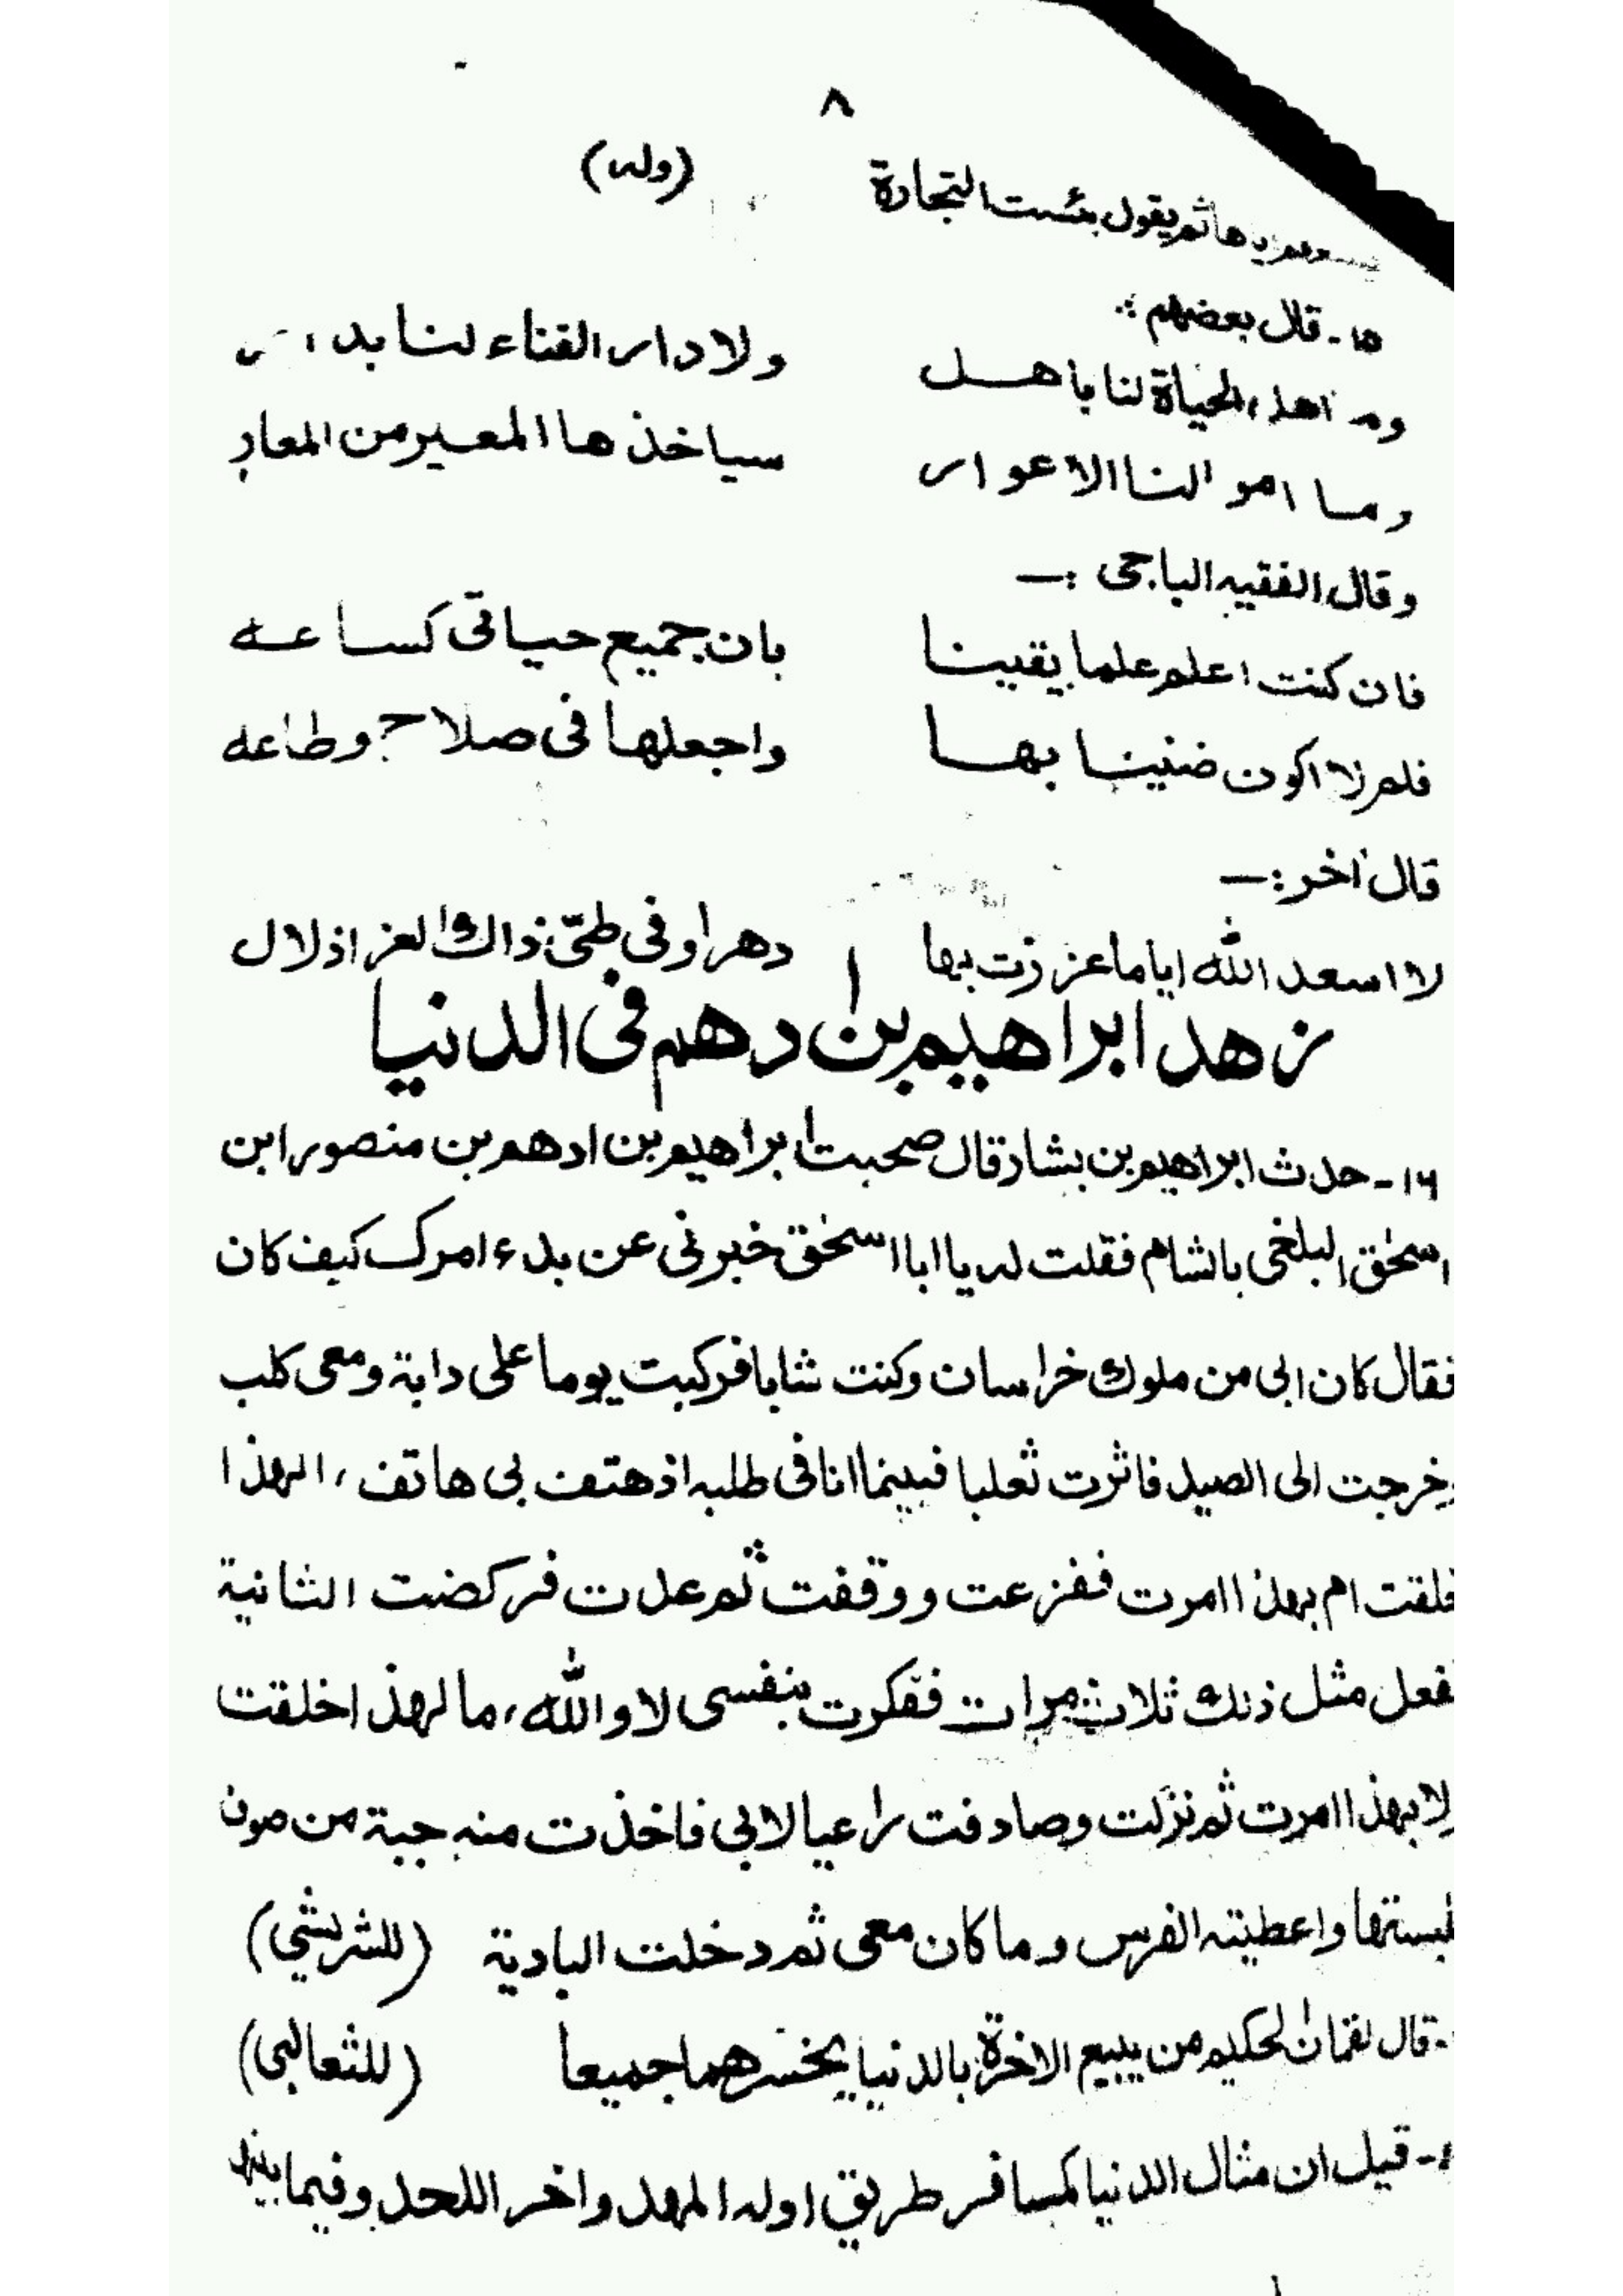 ٨
ثم يقول بئست التجارة (وله)
١٥- قال بعضهم :
وما اهل الحياة لنا باهل ولا دار الفناء لنا بدار
وما اموالنا الا عوار سياخذها المعير من المعار
وقال الفقيه الباجى :—
فان كنت اعلم علما يقينا بان جميع حياتى كساعه
فلم لا اكون ضنينا بها واجعلها فى صلاح وطاعه
قال اخر :—
لا اسعد الله اياما عززت بها دهرا وفى طىّ ذاك العز اذلال
زهد ابراهيم بن ادهم فى الدنيا
١٦- حدث ابراهيم بن بشار قال صحبت ابراهيم بن ادهم بن منصور ابن
اسحٰق البلخى بالشام فقلت له يا ابا اسحٰق خبرنى عن بدء امرك كيف كان
فقال كان ابى من ملوك خراسان وكنت شابا فركبت يوما على دابة ومعى كلب
وخرجت الى الصيد فاثرت ثعلبا فبينما انا فى طلبه اذ هتف بى هاتف، الهذا
خلقت ام بهذا امرت ففزعت ووقفت ثم عدت فركضت الثانية
ففعل مثل ذلك ثلاث مرات ففكرت بنفسى لا والله، ما لهذا خلقت
ولا بهذا امرت ثم نزلت وصادفت راعيا لابى فاخذت منه جبة من صوف
فلبستها واعطيته الفرس وما كان معى ثم دخلت البادية (للشريشي)
- قال لقمان الحكيم من يبيع الاخرة بالدنيا يخسرهما جميعا (للثعالبى)
- قيل ان مثال الدنيا كمسافر طريق اوله المهد واخر اللحد وفيما بينهما